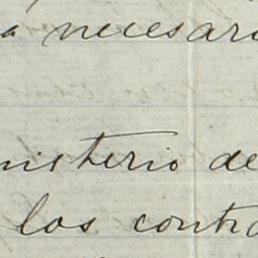 a necesar
nisterio de
los contr